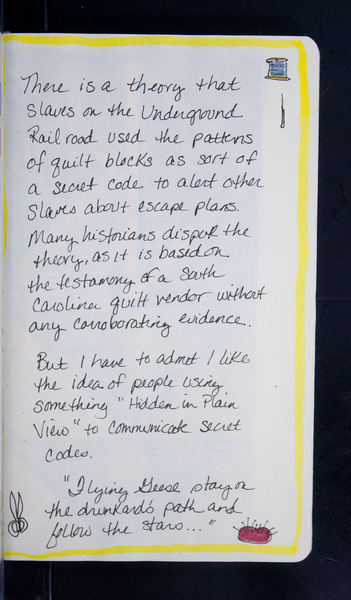 There is a theory that
slaves on the Underground
Railroad used the patterns
of quilt blocks as sort of
a secret code to alert other
slaves about escape plans.
Many historians dispute the
theory, as it is based on
the testamony of a South
Carolina quilt vendor without
any corroborating evidence.
But I have to admit I like
the idea of people using
something "Hidden in Plain
View" to communicate secret
codes.
"Flying Geese stay on
the drunkard's path and
follow the stars..."